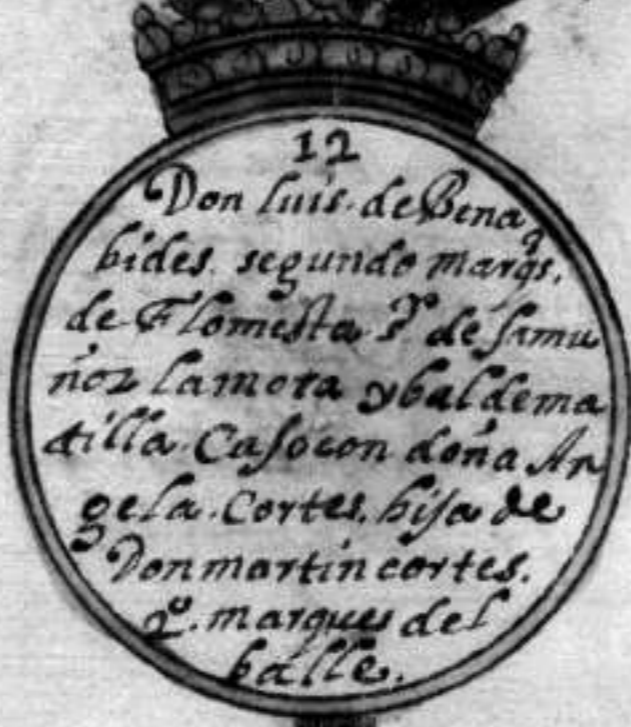 12
Don luis. de Bena
bides. segundo marqs.
de Flomesta. sr. de samu
ñoz la mota y baldema
tilla. Caso con doña An
gela. Cortes. hija de
Don martin cortes.
2o. marques del
balle.